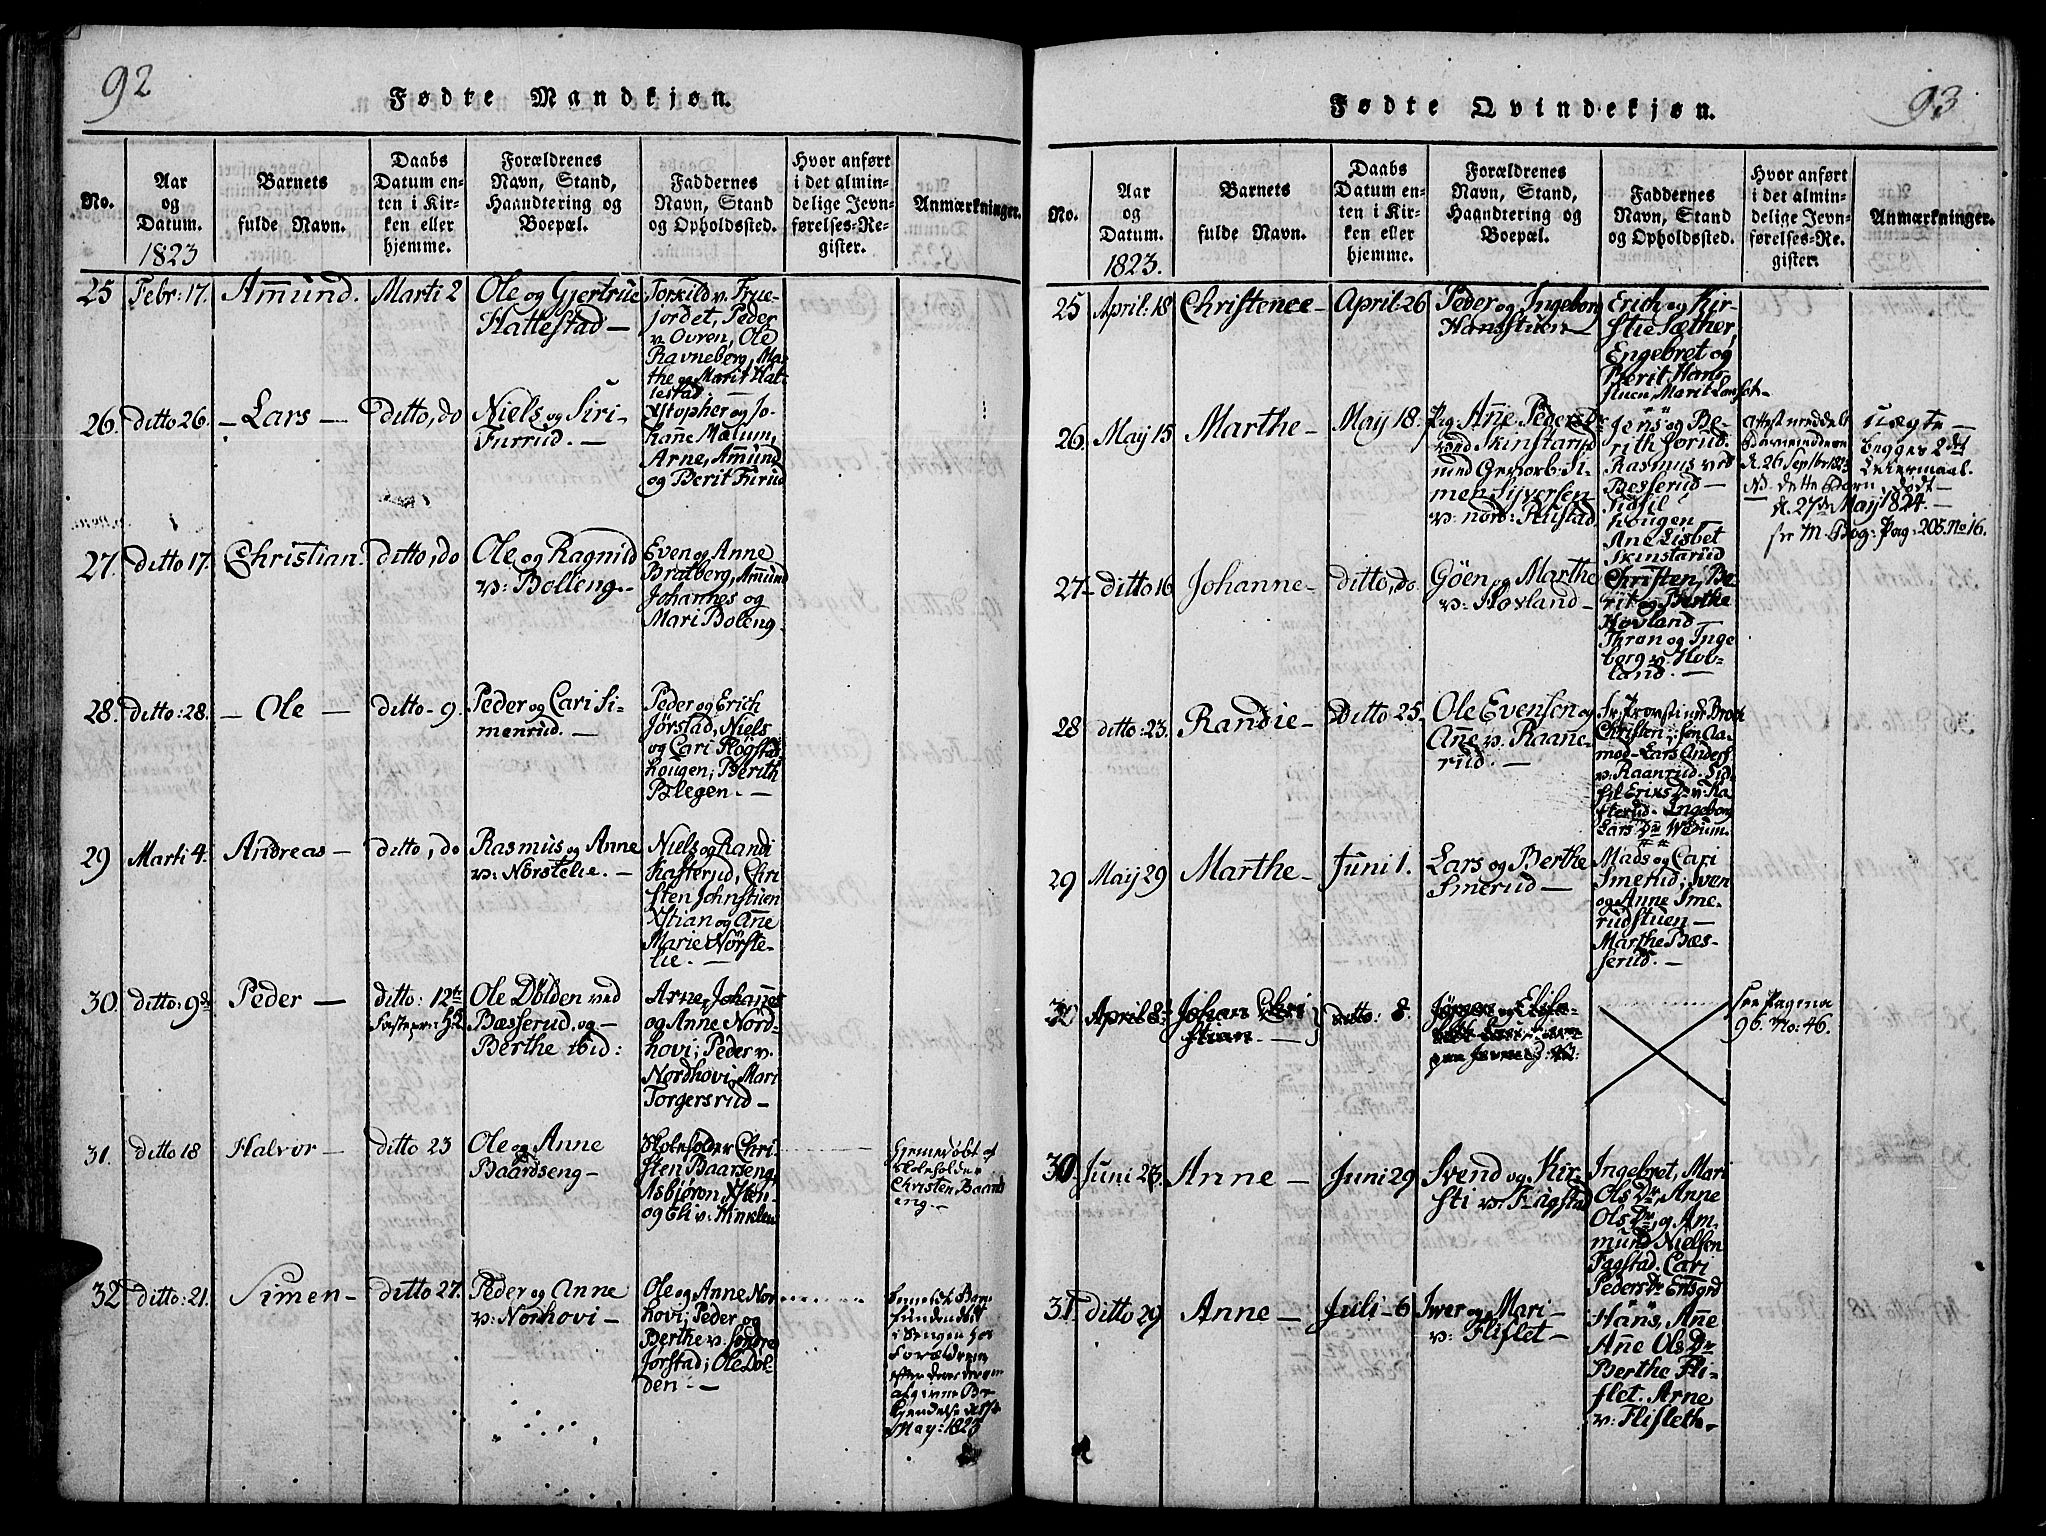 92
Fødte Mandkjøn.
No.
Aar
og
Datum.
1823
Barnets
fulde Navn.
Daabs
Datum en-
ten i Kir-
ken eller
hjemme.
Forældrenes
Navn, Stand,
Haandtering og
Boepæl.
Faddernes
Navn, Stand
og Opholdssted.
Hvor anført
i det almin-
delige Jevn-
førelses-Re-
gister.
Anmærkninger.
25
Febr: 17.
Amund.
Marti 2
Ole og Gjertrue
Hattestad —
Torkild v. Frue-
jordet, Peder
v. Ovren, Ole
Ravneberg, Mar-
the og Marit Hat-
testad. —
26.
ditto 26.
— Lars —
ditto, do
Niels og Siri
Furrud. —
Xstopher og Jo-
hanne Mælum,
Arne, Amund
og Berit Furud
27.
ditto 17.
Christian.
ditto, do
Ole og Ragnild
v: Bolleng.
Even og Anne
Bratberg, Amund
Johannes og
Mari Boleng.
28.
ditto: 28.
— Ole —
ditto - 9.
Peder og Cari Si-
menrud. —
Peder og Erich
Jørstad, Niels
og Cari Flogstad
hougen; Berith
Blegen. —
29
Marti 4.
Andreas —
ditto, do
Rasmus og Anne
v: Norstelie. —
Niels og Randi
Kasterud, Chri
sten Johnstuen
Xstian og Ane
Marie Nørste-
lie. —
30.
ditto: 9de
Peder —
ditto: 12te
Ole Dølden ved
Bæsserud, og —
Berthe ibid:
Arne, Johanes
og Anne Nord-
hovi; Peder v.
Nordhovi, Mari
Torgersrud —
31.
ditto 18
Halvor —
ditto 23
Ole og Anne
Baardseng —
Skoleholder Chri-
sten Baarseng,
Asbjøron, Xsten
og Eli v: Winklen
Hjemedøbt af
Skoleholder
Christen Baards
eng. —
32
ditto: 21.
Simen —
ditto 27.
Peder og Anne
v: Nordhovi —
Ole og Anne Nor
hovi; Peder og
Berthe v: Søndre
Jorstad; Ole Døl-
den —
fundet dødt
i Sengen hos
Forældrene
May: 1823
93
Fødte Qvindekjøn.
No.
Aar
og
Datum.
1823.
Barnets
fulde Navn.
Daabs
Datum en-
ten i Kir-
ken eller
hjemme.
Forældrenes
Navn, Stand,
Haandtering og
Boepæl.
Faddernes
Navn, Stand
og Opholdssted.
Hvor anført
i det almin-
delige Jevn-
førelses-Re-
gister.
Anmærkninger.
25
April: 18
Christence —
April 26
Peder og Ingeborg
Hansstuen —
Erich og Kir-
stie Sæther,
Engebret og
Berit Hans-
stuen, Marit
26.
May 15
Marthe —
May 18.
Pig Ane Pedersdr
ved Skinstarud
Simen Syversen
v: nord: Rustad
Jens og Be-
rith Jorud.
Rasmus ved
Besserud —
Sidsil
hougen
Ane Lisbet
Skinstarud
Attest meddelt
d. 26 Septbr 1823
NB. dette Barn, dødt —
d. 27de May 1824. —
see M. Bog: Pag: 205. No 16.
Uægte —
begges 2det
Leiermaal.
27 —
ditto 16
Johanne —
ditto, do.
Göen og Marthe
v: Hovland —
Christen, Be-
rit og Berthe
Hovland —
Thron og Inge
borg v. Hov-
land. —
28
ditto: 23.
Randie —
Ditto 25.
Ole Evensen og
Ane v. Raane-
rud. —
Christen
Lars Anders
v: Raanrud. Sid-
sil Erixs Dr v: Ka-
sterud. Ingebor
Lars Dr Wedum.
29
May 29
Marthe —
Juni 1.
Lars og Berthe
Smerud —
Mads og Cari
Smerud; Sven
og Anne Sme-
rudstuen —
Marthe Bæs-
serud. —
30
April 8de
Johan Chri
stian. —
ditto: 8.
see Pagena
96. No: 46.
30.
Juni 23.
Anne —
Juni 29
Svend og Kir-
sti v. Fagstad
Ingebret, Mari
Ols Dr, Anne
Ols Dr, og Am-
mund Nielsen
Fagstad. Cari
Peders Dr Ensgrd
31.
ditto 29
Anne —
Juli — 6
Iver og Mari —
v: Fliflet —
Hans, Ane
Ane Ols Dr
Berthe Fli-
flet. Arne
v: Flifleth —